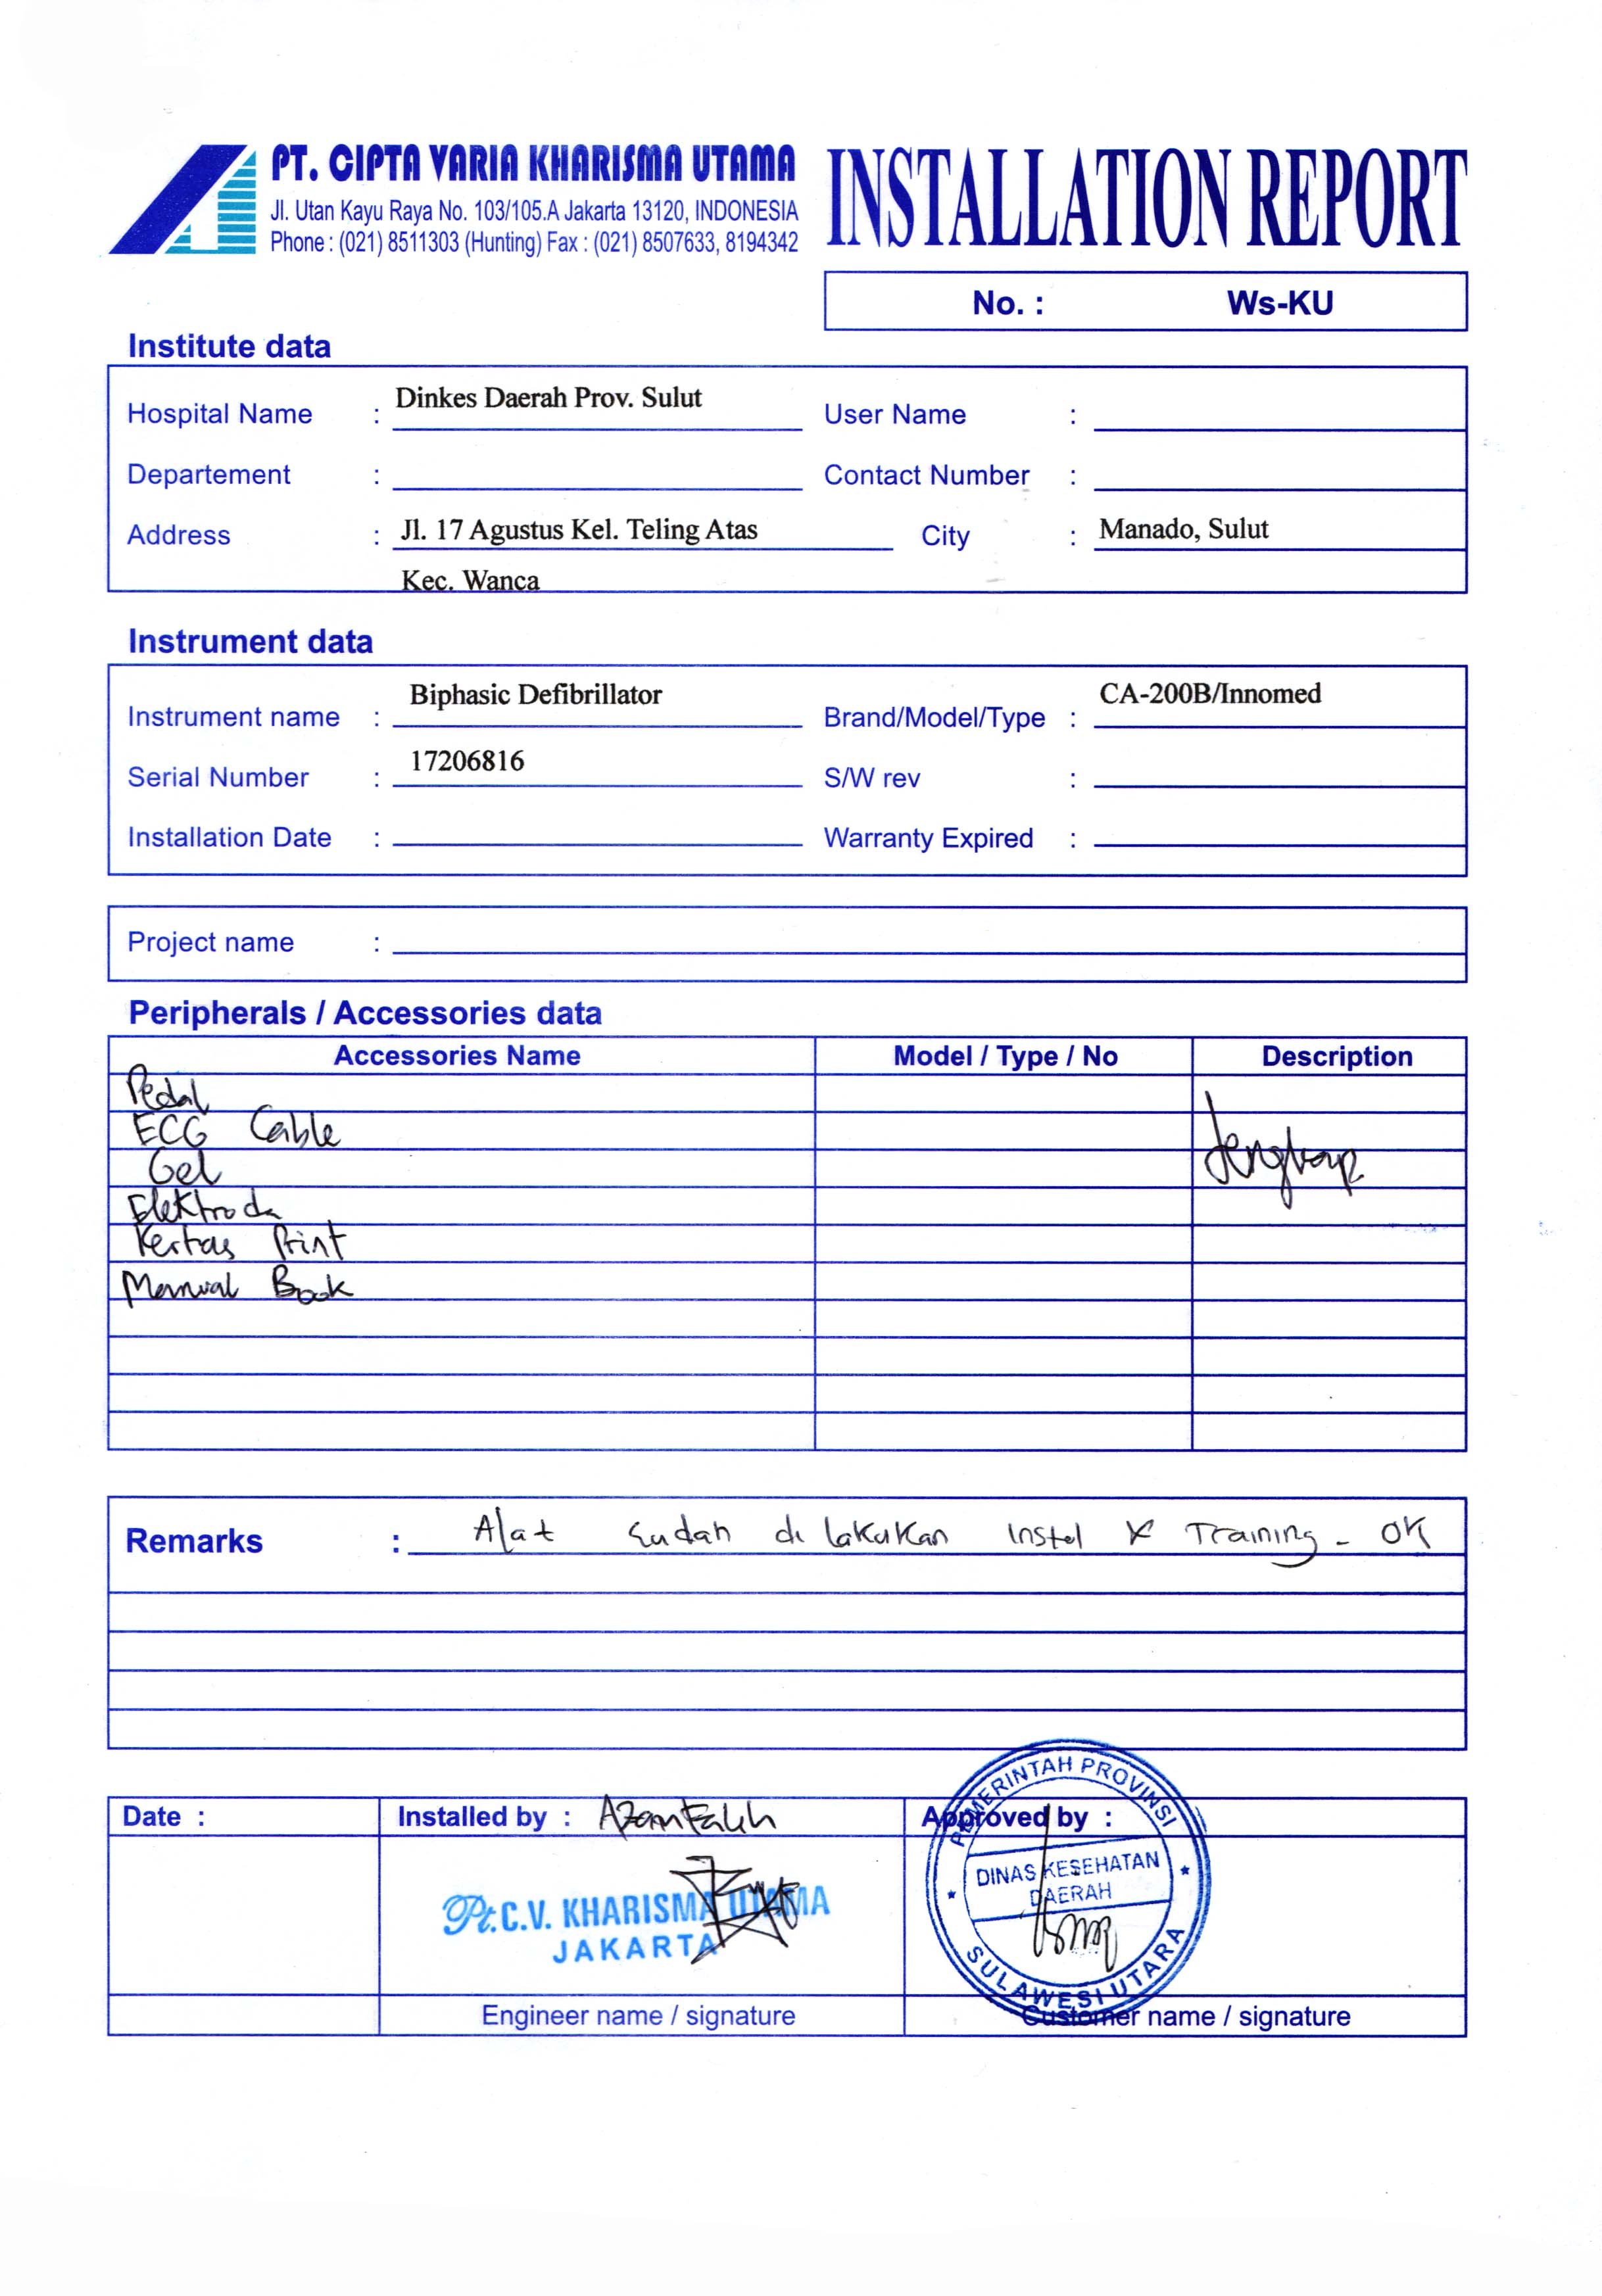 PT. CIPTA VARIA KHARISMA UTAMA
Jl. Utan Kayu Raya No. 103/105.A Jakarta 13120, INDONESIA
Phone : (021) 8511303 (Hunting) Fax : (021) 8507633, 8194342
INSTALLATION REPORT
No. : Ws-KU
Institute data
Hospital Name : Dinkes Daerah Prov. Sulut User Name :
Departement : Contact Number :
Address : Jl. 17 Agustus Kel. Teling Atas City : Manado, Sulut
Kec. Wanca
Instrument data
Instrument name : Biphasic Defibrillator Brand/Model/Type : CA-200B/Innomed
Serial Number : 17206816 S/W rev :
Installation Date : Warranty Expired :
Project name :
Peripherals / Accessories data
Accessories Name Model / Type / No Description
Pedal
ECG Cable
Gel lengkap
Elektroda
Kertas Print
Manual Book
Remarks : Alat sudah di lakukan Instal & Training - OK
Date : Installed by : Azam Falih Approved by :
PEMERINTAH PROVINSI
DINAS KESEHATAN
DAERAH
SULAWESI UTARA
Pt. C.V. KHARISMA UTAMA
JAKARTA
Engineer name / signature Customer name / signature